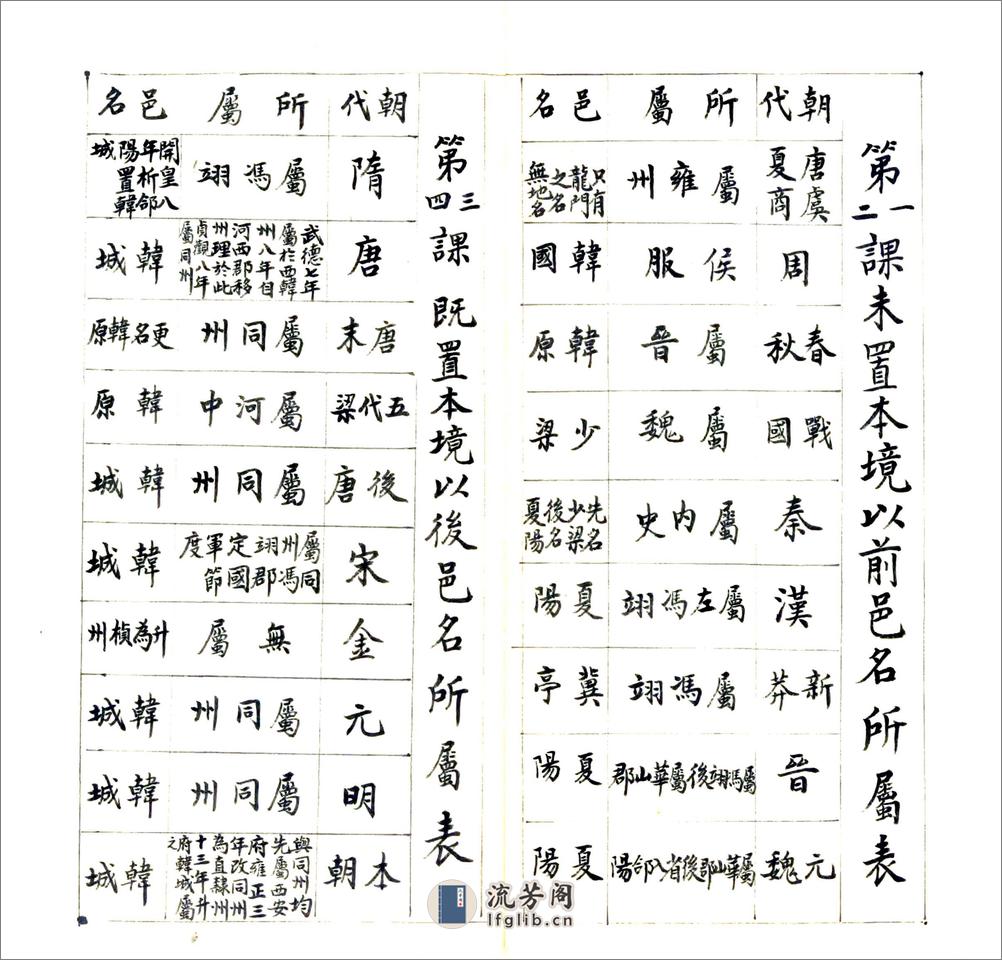 第一二課未置本境以前邑名所屬表
朝代 所屬 邑名
唐虞夏商 屬雍州 只有龍門之名無地名
周 侯服 韓國
春秋 屬晉 韓原
戰國 屬魏 少梁
秦 屬內史 先名少梁後名夏陽
漢 屬左馮翊 夏陽
新莽 屬馮翊 冀亭
晉 屬馮翊後屬華山郡 夏陽
元魏 屬華山郡後省入郃陽 夏陽
第三四課既置本境以後邑名所屬表
朝代 所屬 邑名
隋 屬馮翊 開皇八年析郃陽置韓城
唐 武德七年屬於西韓州八年自河西郡移州理於此貞觀八年屬同州 韓城
唐末 屬同州 更名韓原
五代梁 屬河中 韓原
後唐 屬同州 韓城
宋 屬同州馮翊郡定國軍節度 韓城
金 無屬 升為楨州
元 屬同州 韓城
明 屬同州 韓城
本朝 與同州均先屬西安府雍正三年改同州為直隸州十三年升府韓城屬之 韓城
流芳阁
lfglib.cn